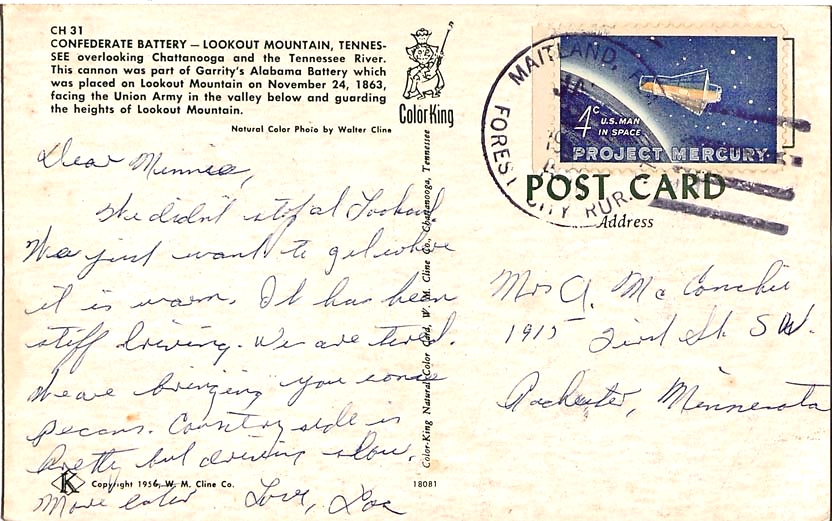 CH 31
CONFEDERATE BATTERY — LOOKOUT MOUNTAIN, TENNES-
SEE overlooking Chattanooga and the Tennessee River.
This cannon was part of Garrity's Alabama Battery which
was placed on Lookout Mountain on November 24, 1863,
facing the Union Army in the valley below and guarding
the heights of Lookout Mountain.
Natural Color Photo by Walter Cline
ColorKing
Dear Minnie,
We didn't stop at Lookout.
We just want to get where
it is warm. It has been
stiff driving. We are tired.
We are bringing you some
pecans. Country side is
pretty but driving slow.
More later Love,
K
Copyright 1956, W. M. Cline Co.
18081
Color-King Natural Color Card, W. M. Cline Co., Chattanooga, Tennessee
MAITLAND,
FOREST CITY RUR.
4c U.S. MAN
IN SPACE
PROJECT MERCURY
POST CARD
Address
Mrs A. McConchie
1915 First St. SW.
Rochester, Minnesota